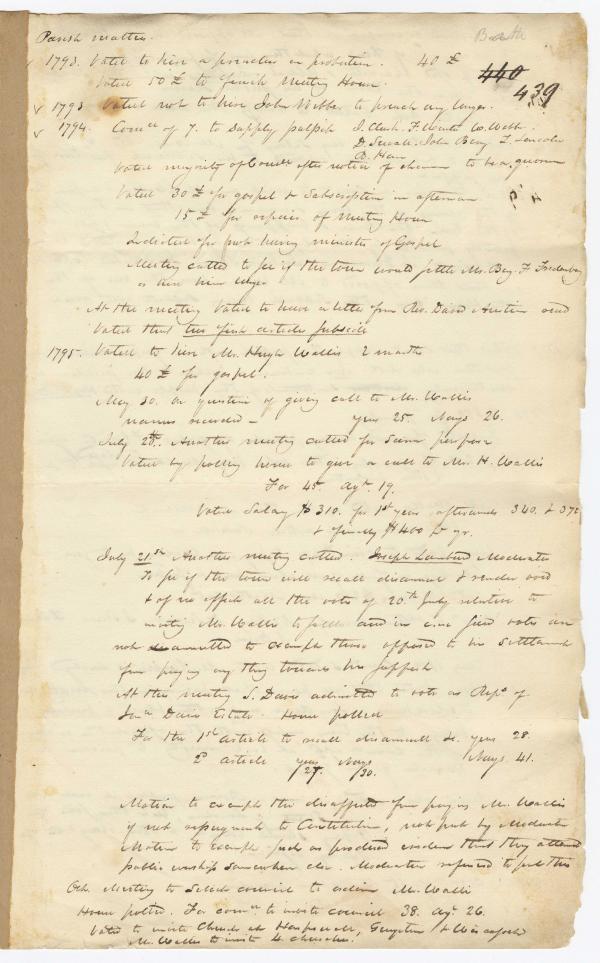 Parish matters.
Bath
1793. Voted to hire a preacher on probation. 40 £
440
439
Voted 50 £ to finish Meeting House.
1793 Voted not to hire John Webber to preach any longer.
1794. Comee of 7. to supply pulpit J. Clark. F. Winter W. Webb.
D. Sewall. John Berry L. Lincoln
Voted majority of Comee after notice of to be a quorum
Voted 30 £ for gospel & Subscription in afternoon
15 £ for repairs of Meeting House
Indicted for not having minister of Gospel
Meeting called to see if the town would settle Mr.
or hire him longer
At this meeting Voted to have a letter from Rev. David Austin read
Voted that this first article subside
1795. Voted to hire Mr. Hugh Wallis 2 months
40 £ for gospel.
May 30. On question of giving call to Mr. Wallis
names recorded – yeas 25. Nays 26.
July 20th. Another meeting called for same purpose
Voted by polling house to give a call to Mr. H. Wallis
For 45 Agst. 19.
Voted Salary $310. for 1st year afterwards 340. & 370
& finally $400 pr yr.
July 21st Another meeting called. Joseph Lambert Moderator
To see if the town will recall disannul & render void
& of no effect all the votes of 20th July relative to
inviting Mr. Wallis to settle and in case said votes are
not annulled to exempt those opposed to his settlement
from paying any thing towards his support
At this meeting S. Davis admitted to vote as Repe of
Jona Davis Estate. House polled
For the 1st article to recall disannull &c. yeas 28.
Nays. 41.
2d article yeas 27. Nays 30.
Motion to exempt the disaffected from paying Mr. Wallis
if not repugnant to Constitution, not put by Moderator
Motion to exempt such as produced evidence that they attend
public worship somewhere else. Moderator refused to put this
Oct. Meeting to select council to ordain Mr. Wallis
House polled. For comee to invite council 38. Agt. 26.
Voted to invite Church at Harpswell, Georgetown & Wiscasset
Mr. Wallis to invite 4 churches.